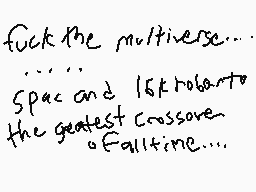 fuck the multiverse....
.....
spac and 16k robarto
the greatest crossover
of alltime....